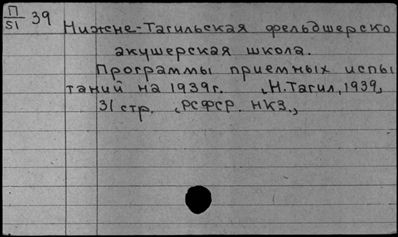 П
51 39
Нижне-Тагильская фельдшерско
акушерская школа.
Программы приемных испы
таний на 1939г. „Н.Тагил, 1939„
31 стр. „РСФСР. НКЗ.„